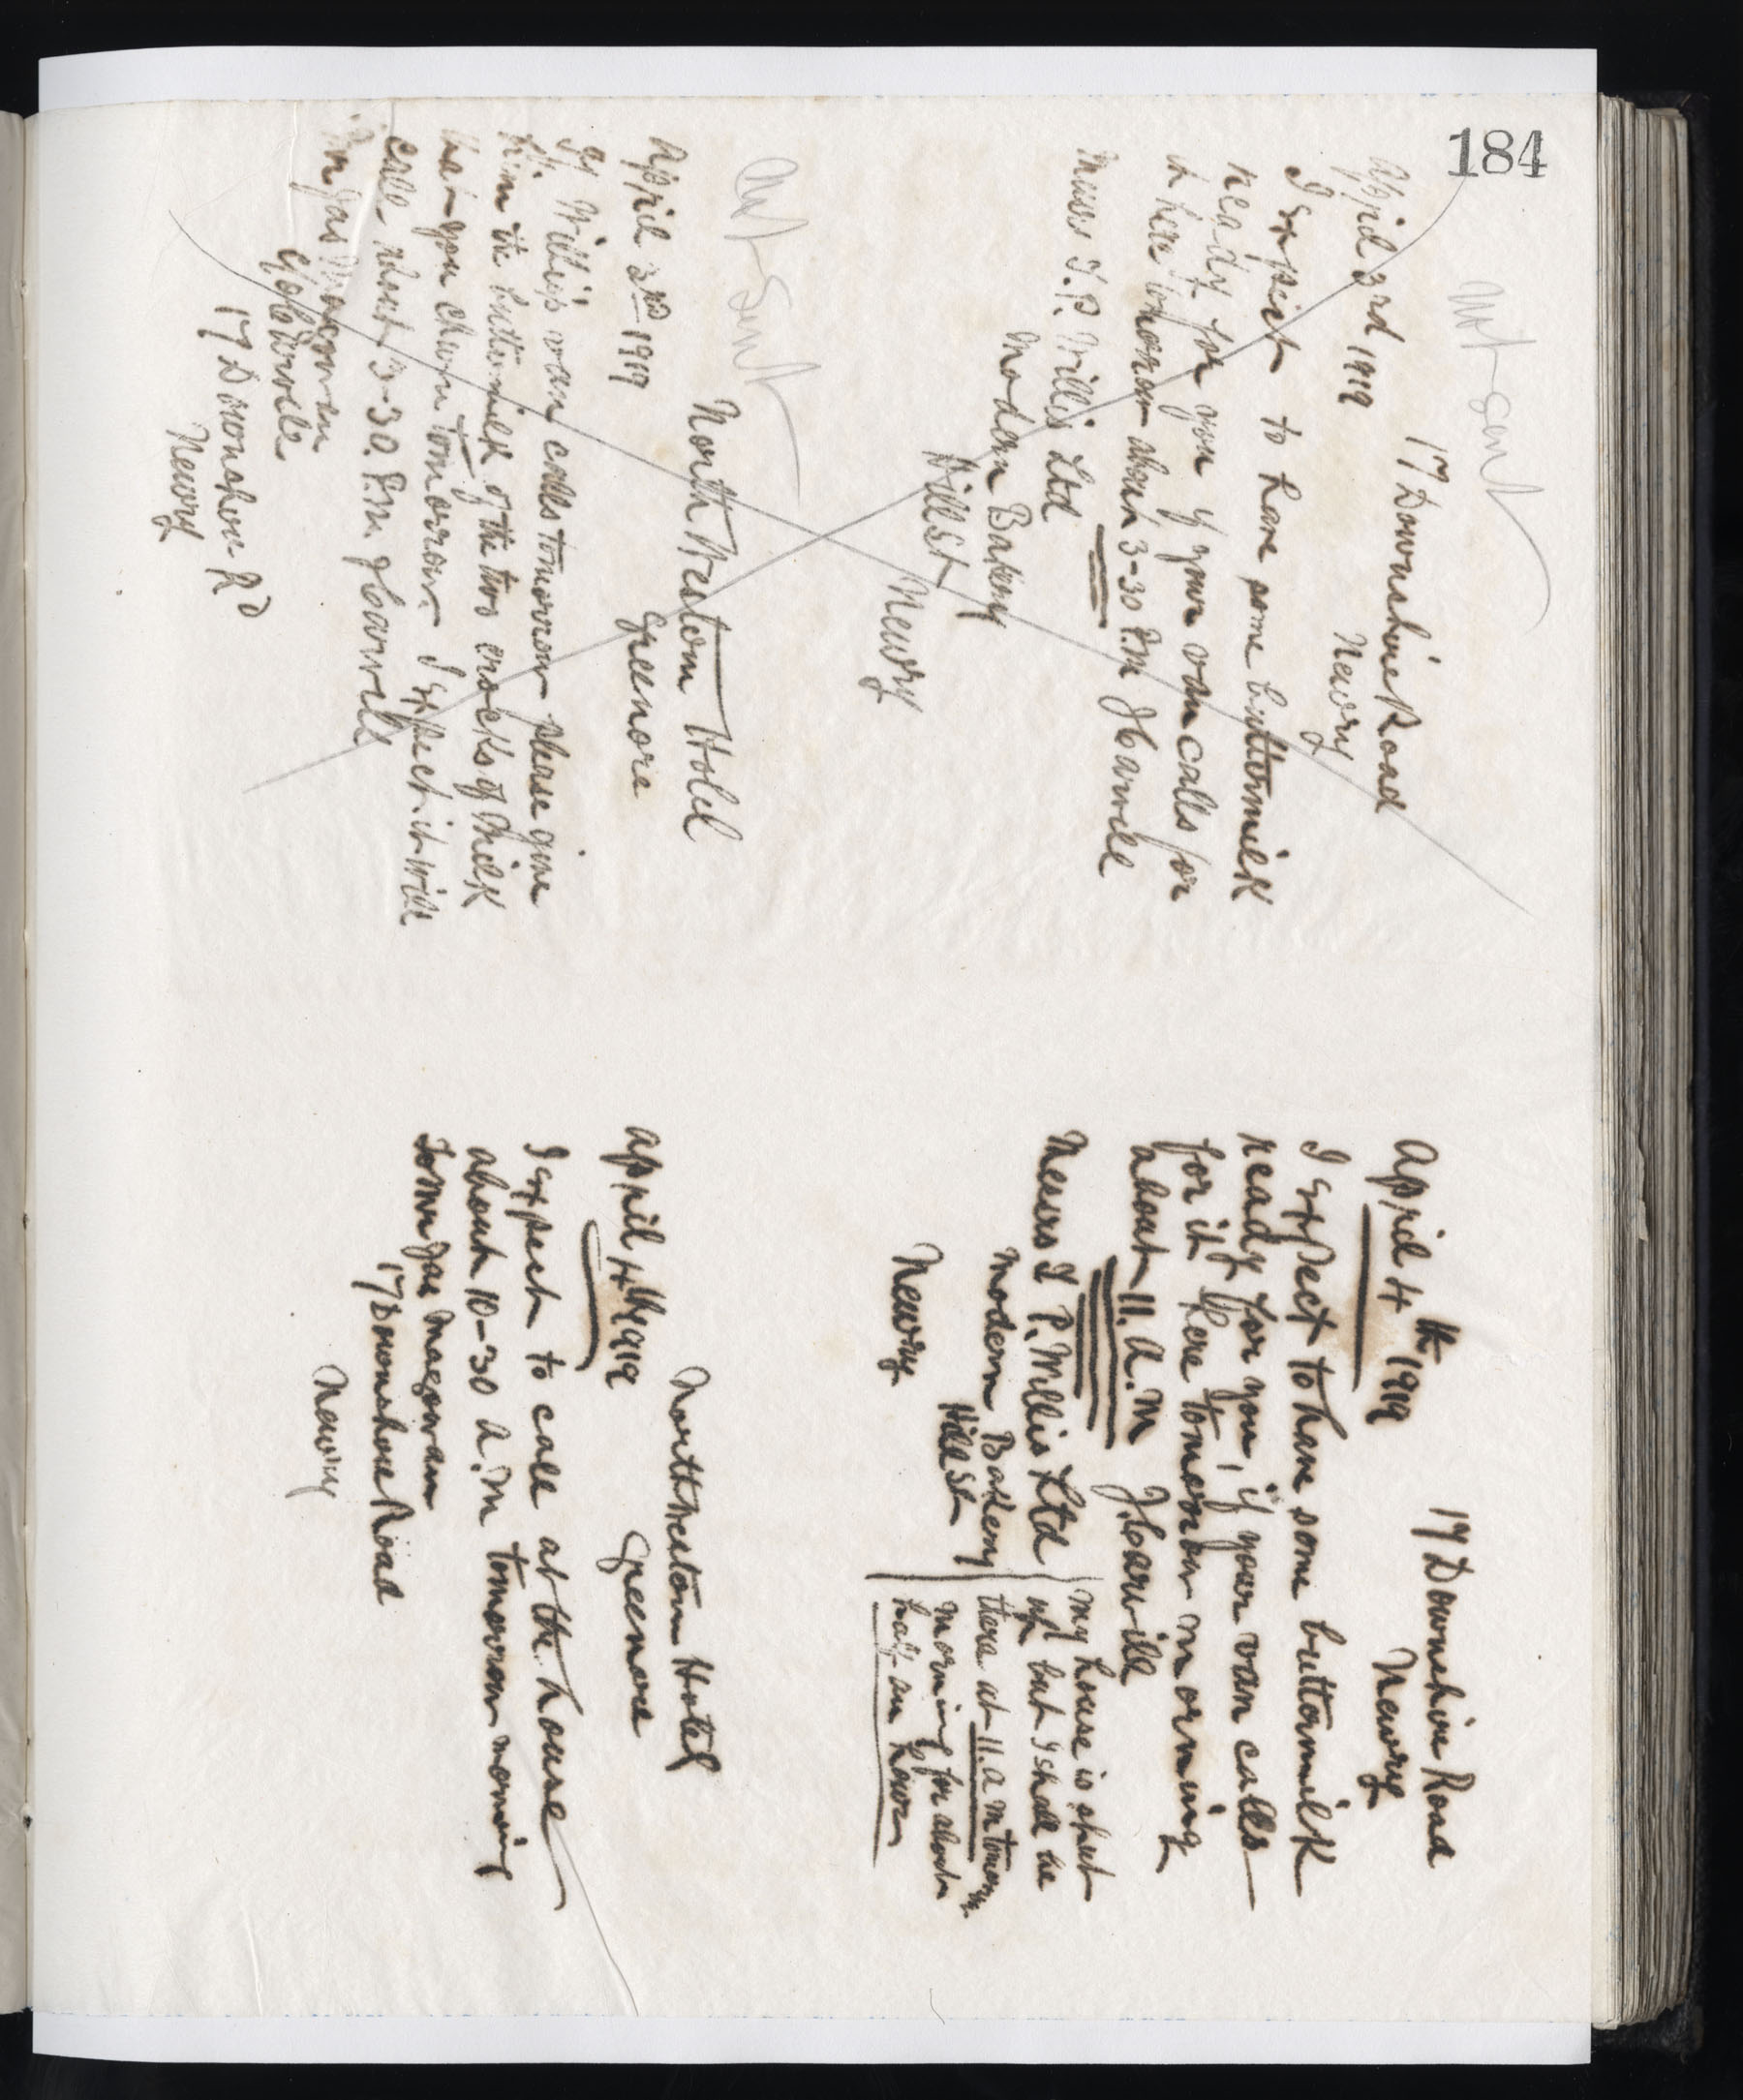 184
not sent
17 Downshire Road
Newry
April 3rd 1919
I expect to have some buttermilk
ready for you if your van calls for
it here tomorrow about 3-30 P.M J Carvill
Messrs T.P. Willis Ltd
Modern Bakery
Hill St
Newry
Not Sent
North Western Hotel
Greenore
April 3rd 1919
If Willis van calls tomorrow please give
him the buttermilk of the two crocks of milk
that you churn tomorrow I expect it will
call about 3-30. P.M. J Carvill
Mrs Jas Magowan
c/o Carvill
17 Downshire Rd
Newry
17 Downshire Road
Newry
April 4th 1919
I expect to have some buttermilk
ready for you, if your van calls
for it here tomorrow morning
about 11. A.M J. Carvill
Messrs T P. Willis Ltd
Modern Bakery
Hill St
Newry
My house is shut
up but I shall be
there at 11. a m tomorrow
morning for about
half an hour
North Western Hotel
Greenore
April 4th 1919
I expect to call at the house
about 10-30 A.M tomorrow morning
Jas Magowan
17 Downshire Road
Newry